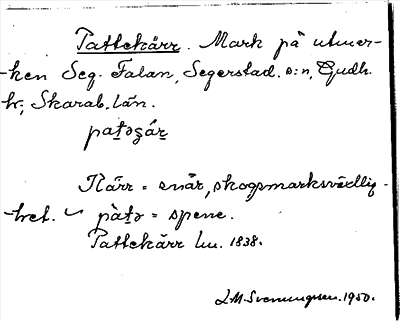 Pattekärr. Mark på utmar-
ken Seg. Falan, Segerstad. s:n, Gudh.
hr; Skarab. län.
paṯəʒáṟ
Kärr = snår, skogsmarksvedlig-
het. pàṯə = spene.
Pattekärr Lu. 1838.
L.M. Svenungsson. 1950.